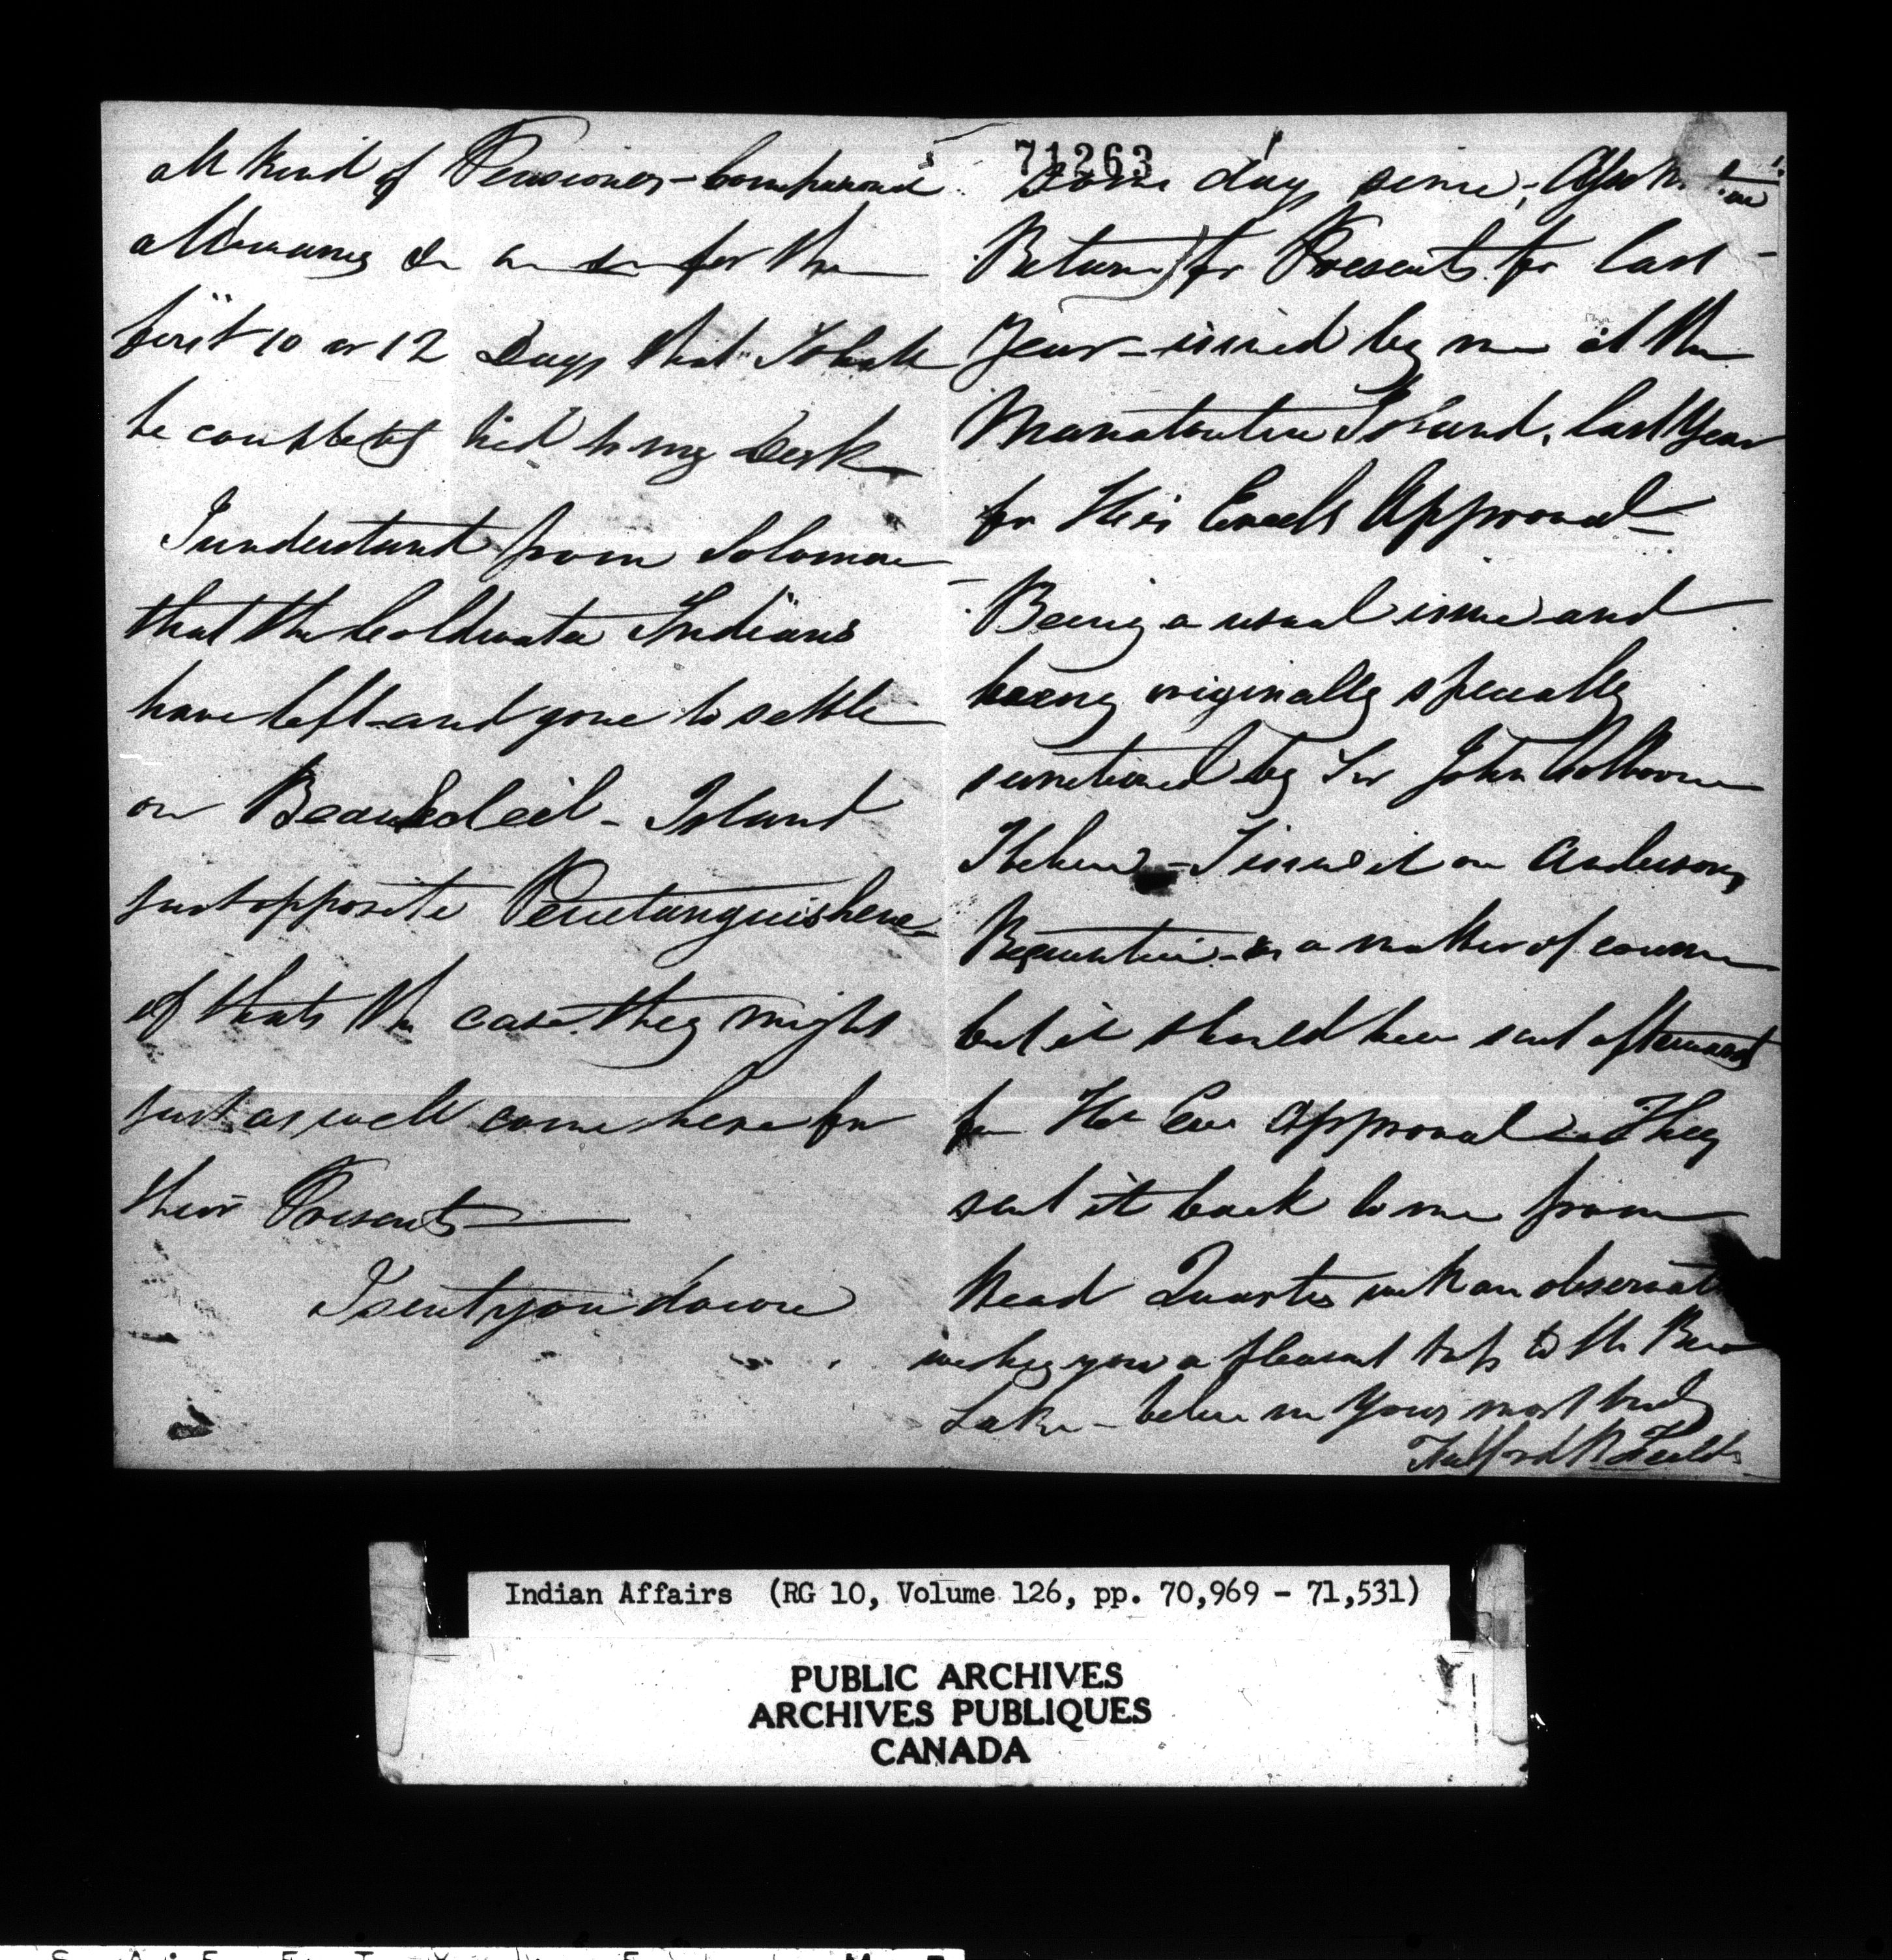 all kind of Pensioners - Compound
allowances &c &c &c for the
first 10 or 12 Days that I shall
be completely tied to my Desk
I understand from Solomon
that the Coldwater Indians
have left and gone to settle
on Beausoleil - Island
just opposite Penetanguishene
if thats the case they might
just as well come here for
their Presents
I sent you down
71263
some days since,
Return for Presents for last
Year - issued by me at the
Manatoulin Island, last Year
for His Excells Approval
Being a usual issue and
being originally specially
sanctioned by Sir John Colborne
I issued it on Andersons
Requisition as a matter of course
but it should been sent afterwards
for His Exc Approval They
sent it back to me from
Head Quarters with an observat
wishing you a pleasant trip to the
Lake - believe me Yours most truly
Indian Affairs (RG 10, Volume 126, pp. 70,969 - 71,531)
PUBLIC ARCHIVES
ARCHIVES PUBLIQUES
CANADA